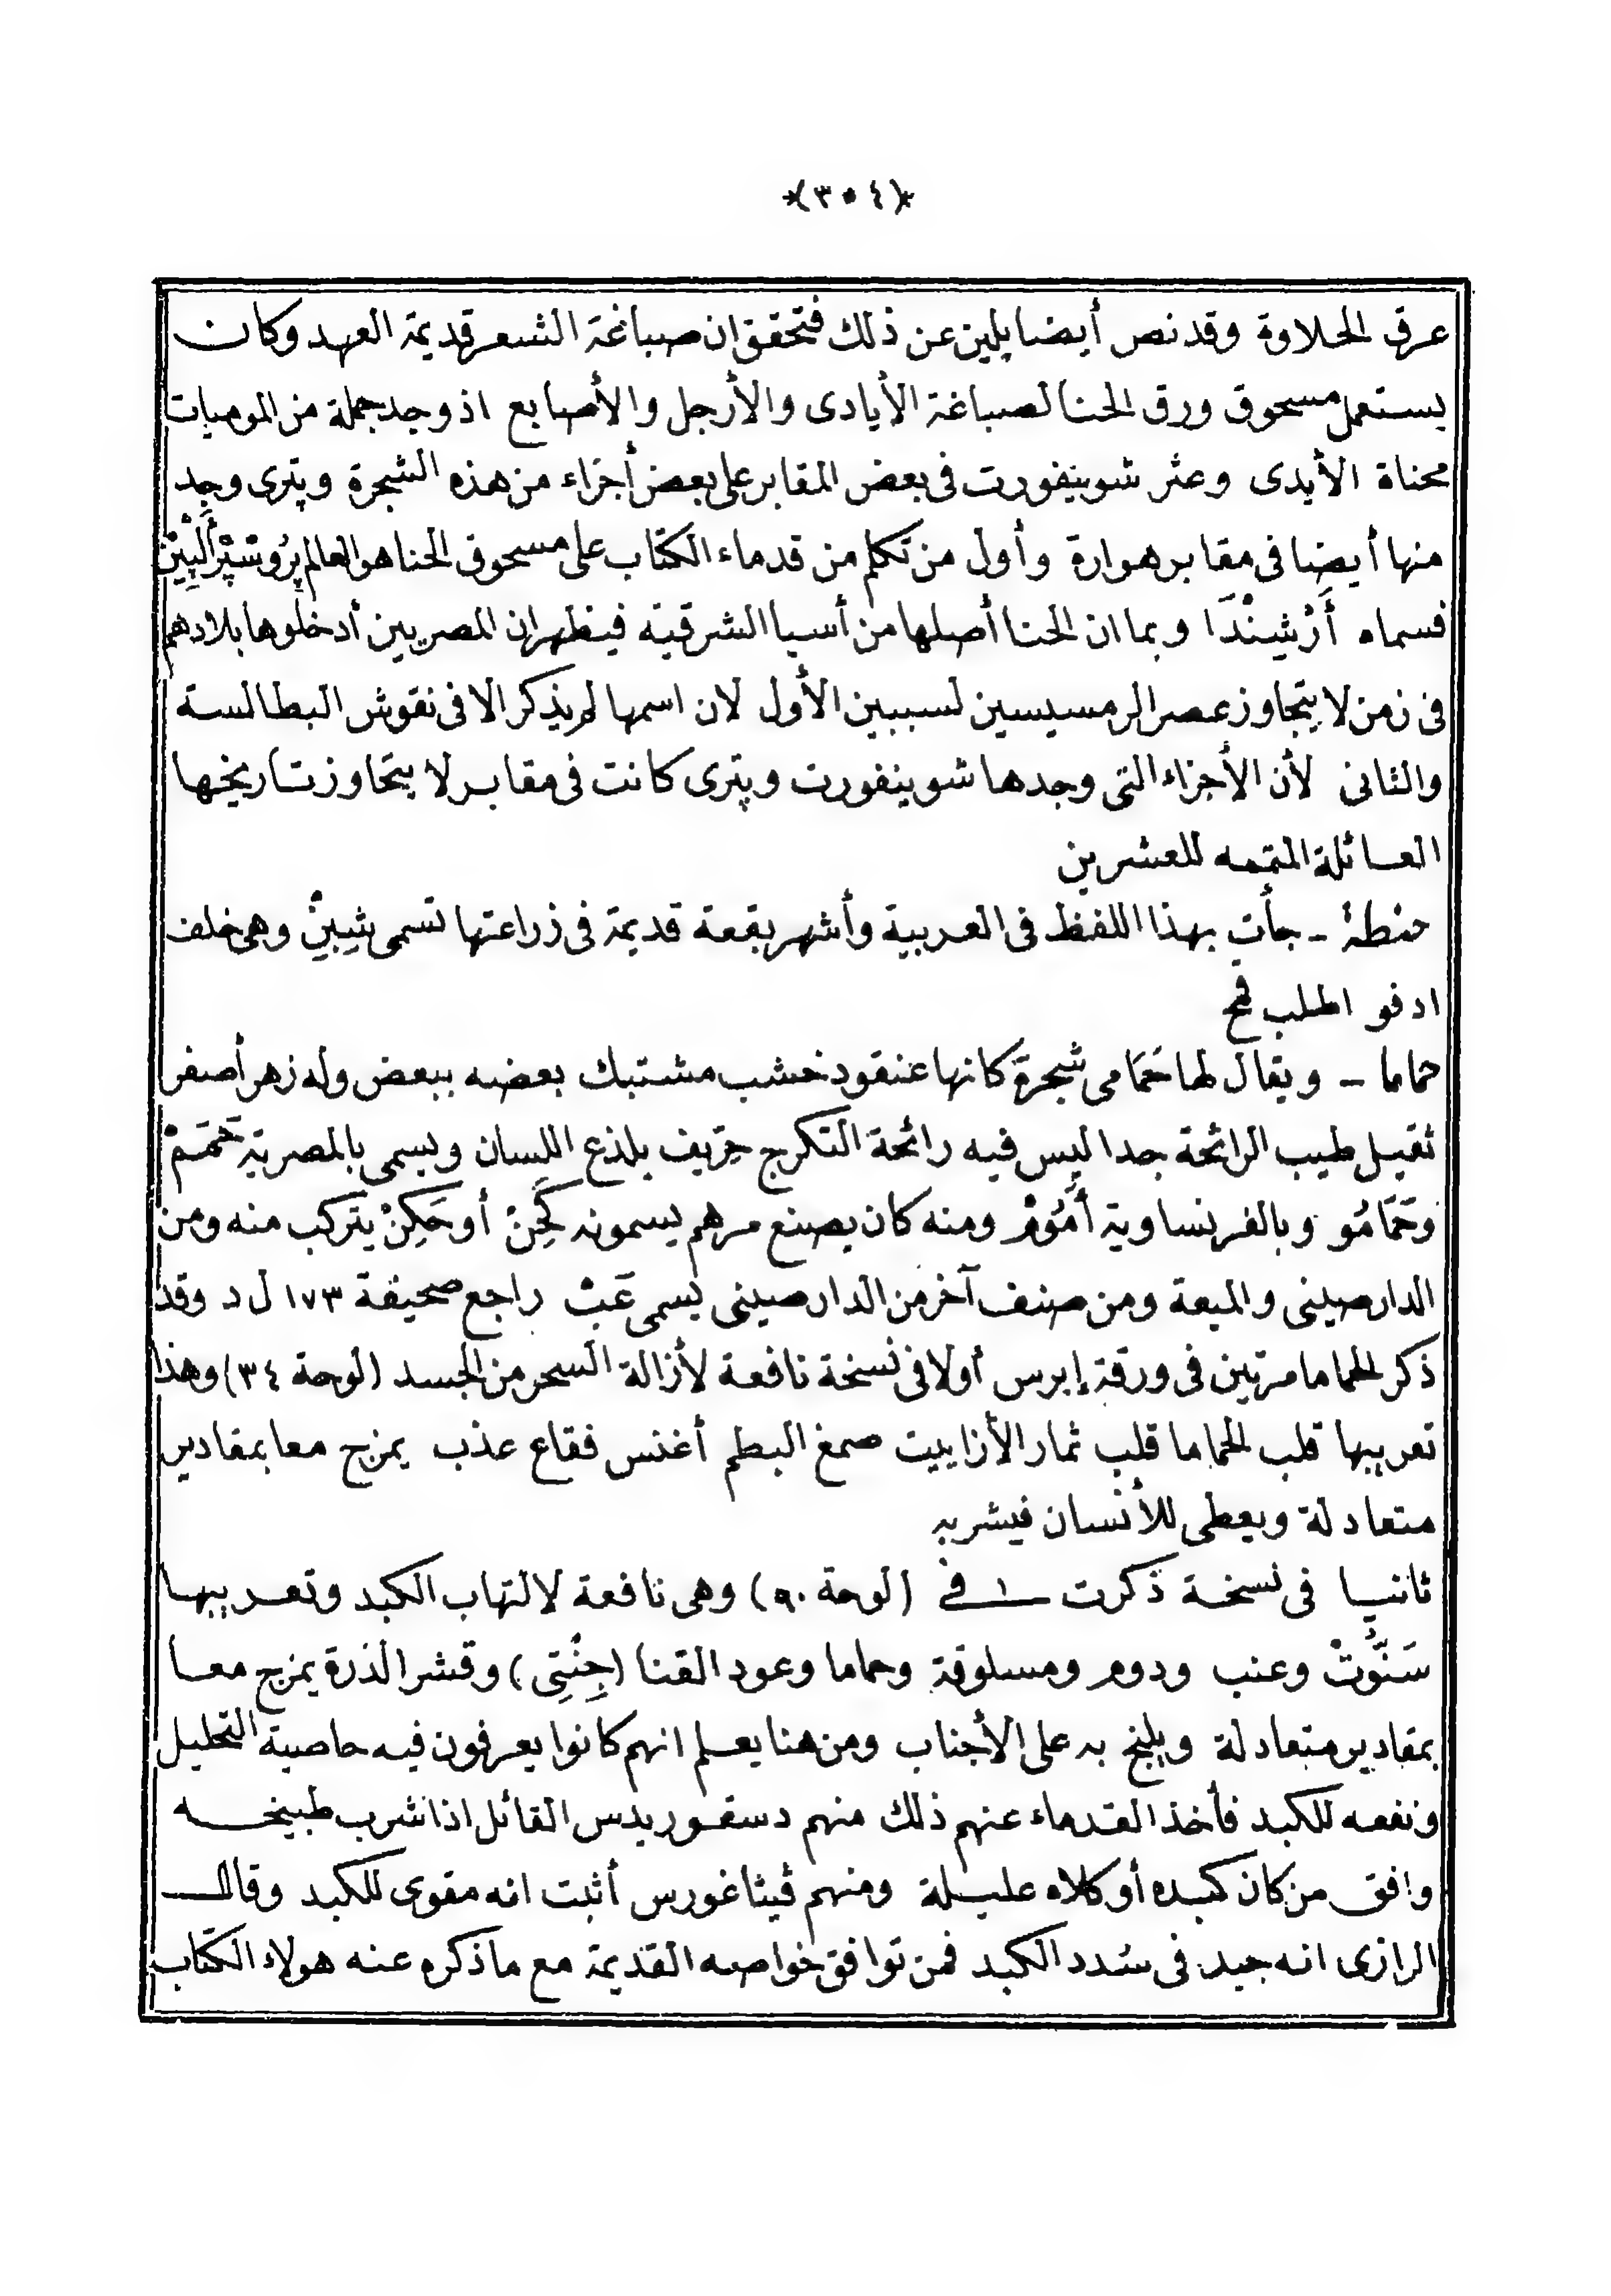 *(٣٥٤)*
عرق الحلاوة وقد نص أيضا بلين عن ذلك فتحقق ان صباغة الشعر قديمة العهد وكان
يستعمل مسحوق ورق الحنا لصباغة الأيادى والأرجل والأصابع اذ وجد جملة من الموميات
محناة الأيدى وعثر شوينيفورت فى بعض المقابر على بعض أجزاء من هذه الشجرة وپترى وجد
منها أيضا فى مقابر هوارة وأول من تكلم من قدماء الكتاب على مسحوق الحنا هو العالم پُروسْپِرْ أَلْپِينْ
فسماه أَرْشِنْدَا وبما ان الحنا أصلها من أسيا الشرقية فيظهر ان المصريين أدخلوها بلادهم
فى زمن لا يتجاوز عصر الرمسيسين لسببين الأول لان اسمها لم يذكر الا فى نقوش البطالسة
والثانى لأن الأجزاء التى وجدها شوينفورت وپترى كانت فى مقابر لا يتجاوز تاريخها
العائلة المتممه للعشرين
حنطة - جأت بهذا اللفظ فى العربية وأشهر بقعة قديمة فى زراعتها تسمى ثِبِنْ وهى خلف
ادفو اطلب قمح
حماما - ويقال لها حَمَامى شجرة كانها عنقود خشب مشتبك بعضه ببعض وله زهر أصفر
ثقيل طيب الرائحة جدا ليس فيه رائحة التكرج حريف يلذع اللسان ويسمى بالمصرية حَمَمْ
وحَمَامُو وبالفرنساوية أَمُومْ ومنه كان يصنع مرهم يسمونه كَحِنْ أو حَكِنْ يتركب منه ومن
الدارصينى والميعة ومن صنف آخر من الدارصينى يسمى عَبْ راجع صحيفة ١٧٣ ل د وقد
ذكر الحماما مرتين فى ورقة إبرس أولا فى نسخة نافعة لأزالة السحر من الجسد (لوحة ٣٤) وهذا
تعريبها قلب الحماما قلب ثمار الأزاييت صمغ البطم أغنس فقاع عذب يمزج معا بمقادير
متعادلة ويعطى للأنسان فيشربه
ثانيا فى نسخة ذكرت فى (لوحة ٩٠) وهى نافعة لالتهاب الكبد وتعريبها
سَنَّوتْ وعنب ودوم ومسلوقة وحماما وعود القنا (جِنْتِى) وقشر الذرة يمزج معا
بمقادير متعادلة ويلبخ به على الأجناب ومن هنا يعلم انهم كانوا يعرفون فيه حاصية التحليل
ونفعه للكبد فأخذ القدماء عنهم ذلك منهم دسقوريدس القائل اذا شرب طبيخه
وافق من كان كبده أو كلاه عليلة ومنهم فيثاغورس أثبت انه مقوى للكبد وقال
الرازى انه جيد فى سُدد الكبد فمن توافق خواصه القديمة مع ما ذكره عنه هولاء الكتاب